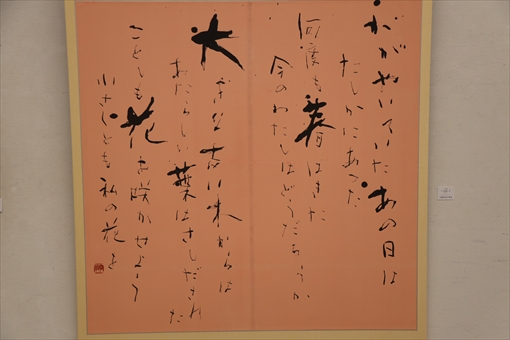 かがやいていたあの日は
たしかにあった
何度も春はきた
今のわたしはどうだろうか
大きな古い株からは
あたらしい葉はさしだされた
ことしも花を咲かせよう
小さくとも私の花を